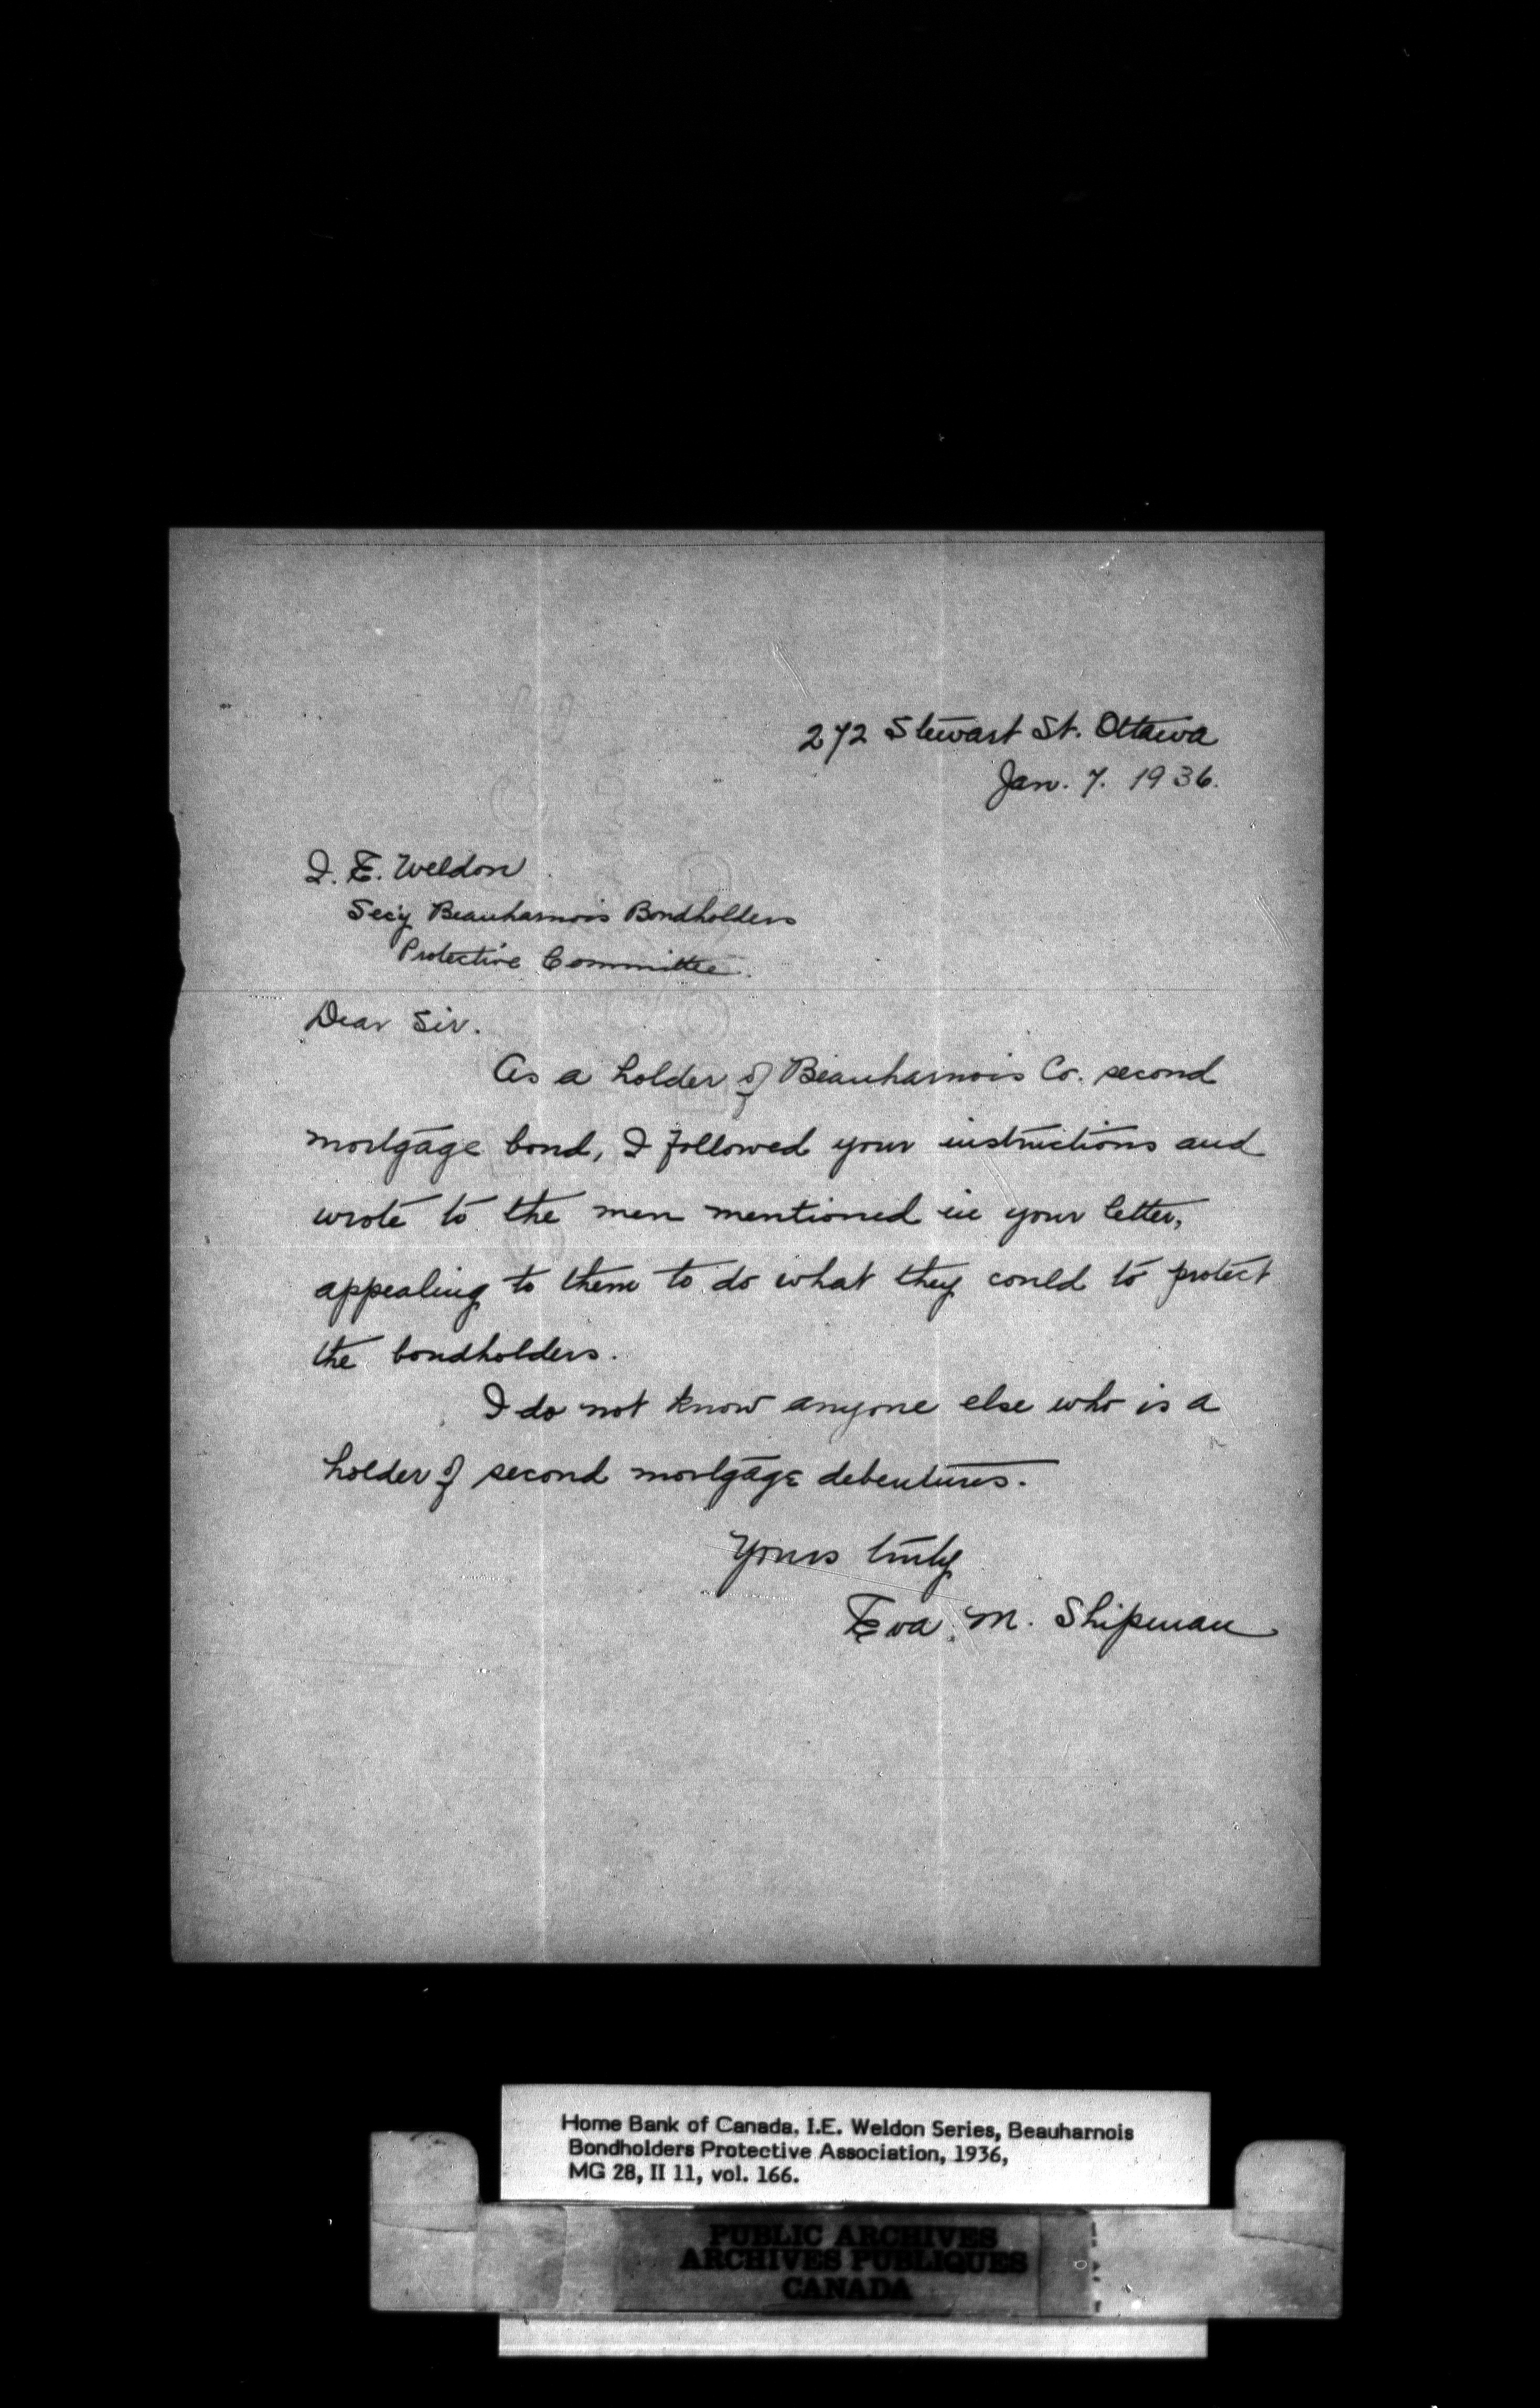 272 Stewart St. Ottawa
Jan. 7. 1936.
I. E. Weldon
Sec'y Beauharnois Bondholders
Protective Committee.
Dear Sir.
As a holder of Beauharnois Co. second
mortgage bond, I followed your instructions and
wrote to the men mentioned in your letter,
appealing to them to do what they could to protect
the bondholders.
I do not know anyone else who is a
holder of second mortgage debentures.
Yours truly
Eva M. Shipman
Home Bank of Canada, I.E. Weldon Series, Beauharnois
Bondholders Protective Association, 1936,
MG 28, II 11, vol. 166.
PUBLIC ARCHIVES
ARCHIVES PUBLIQUES
CANADA